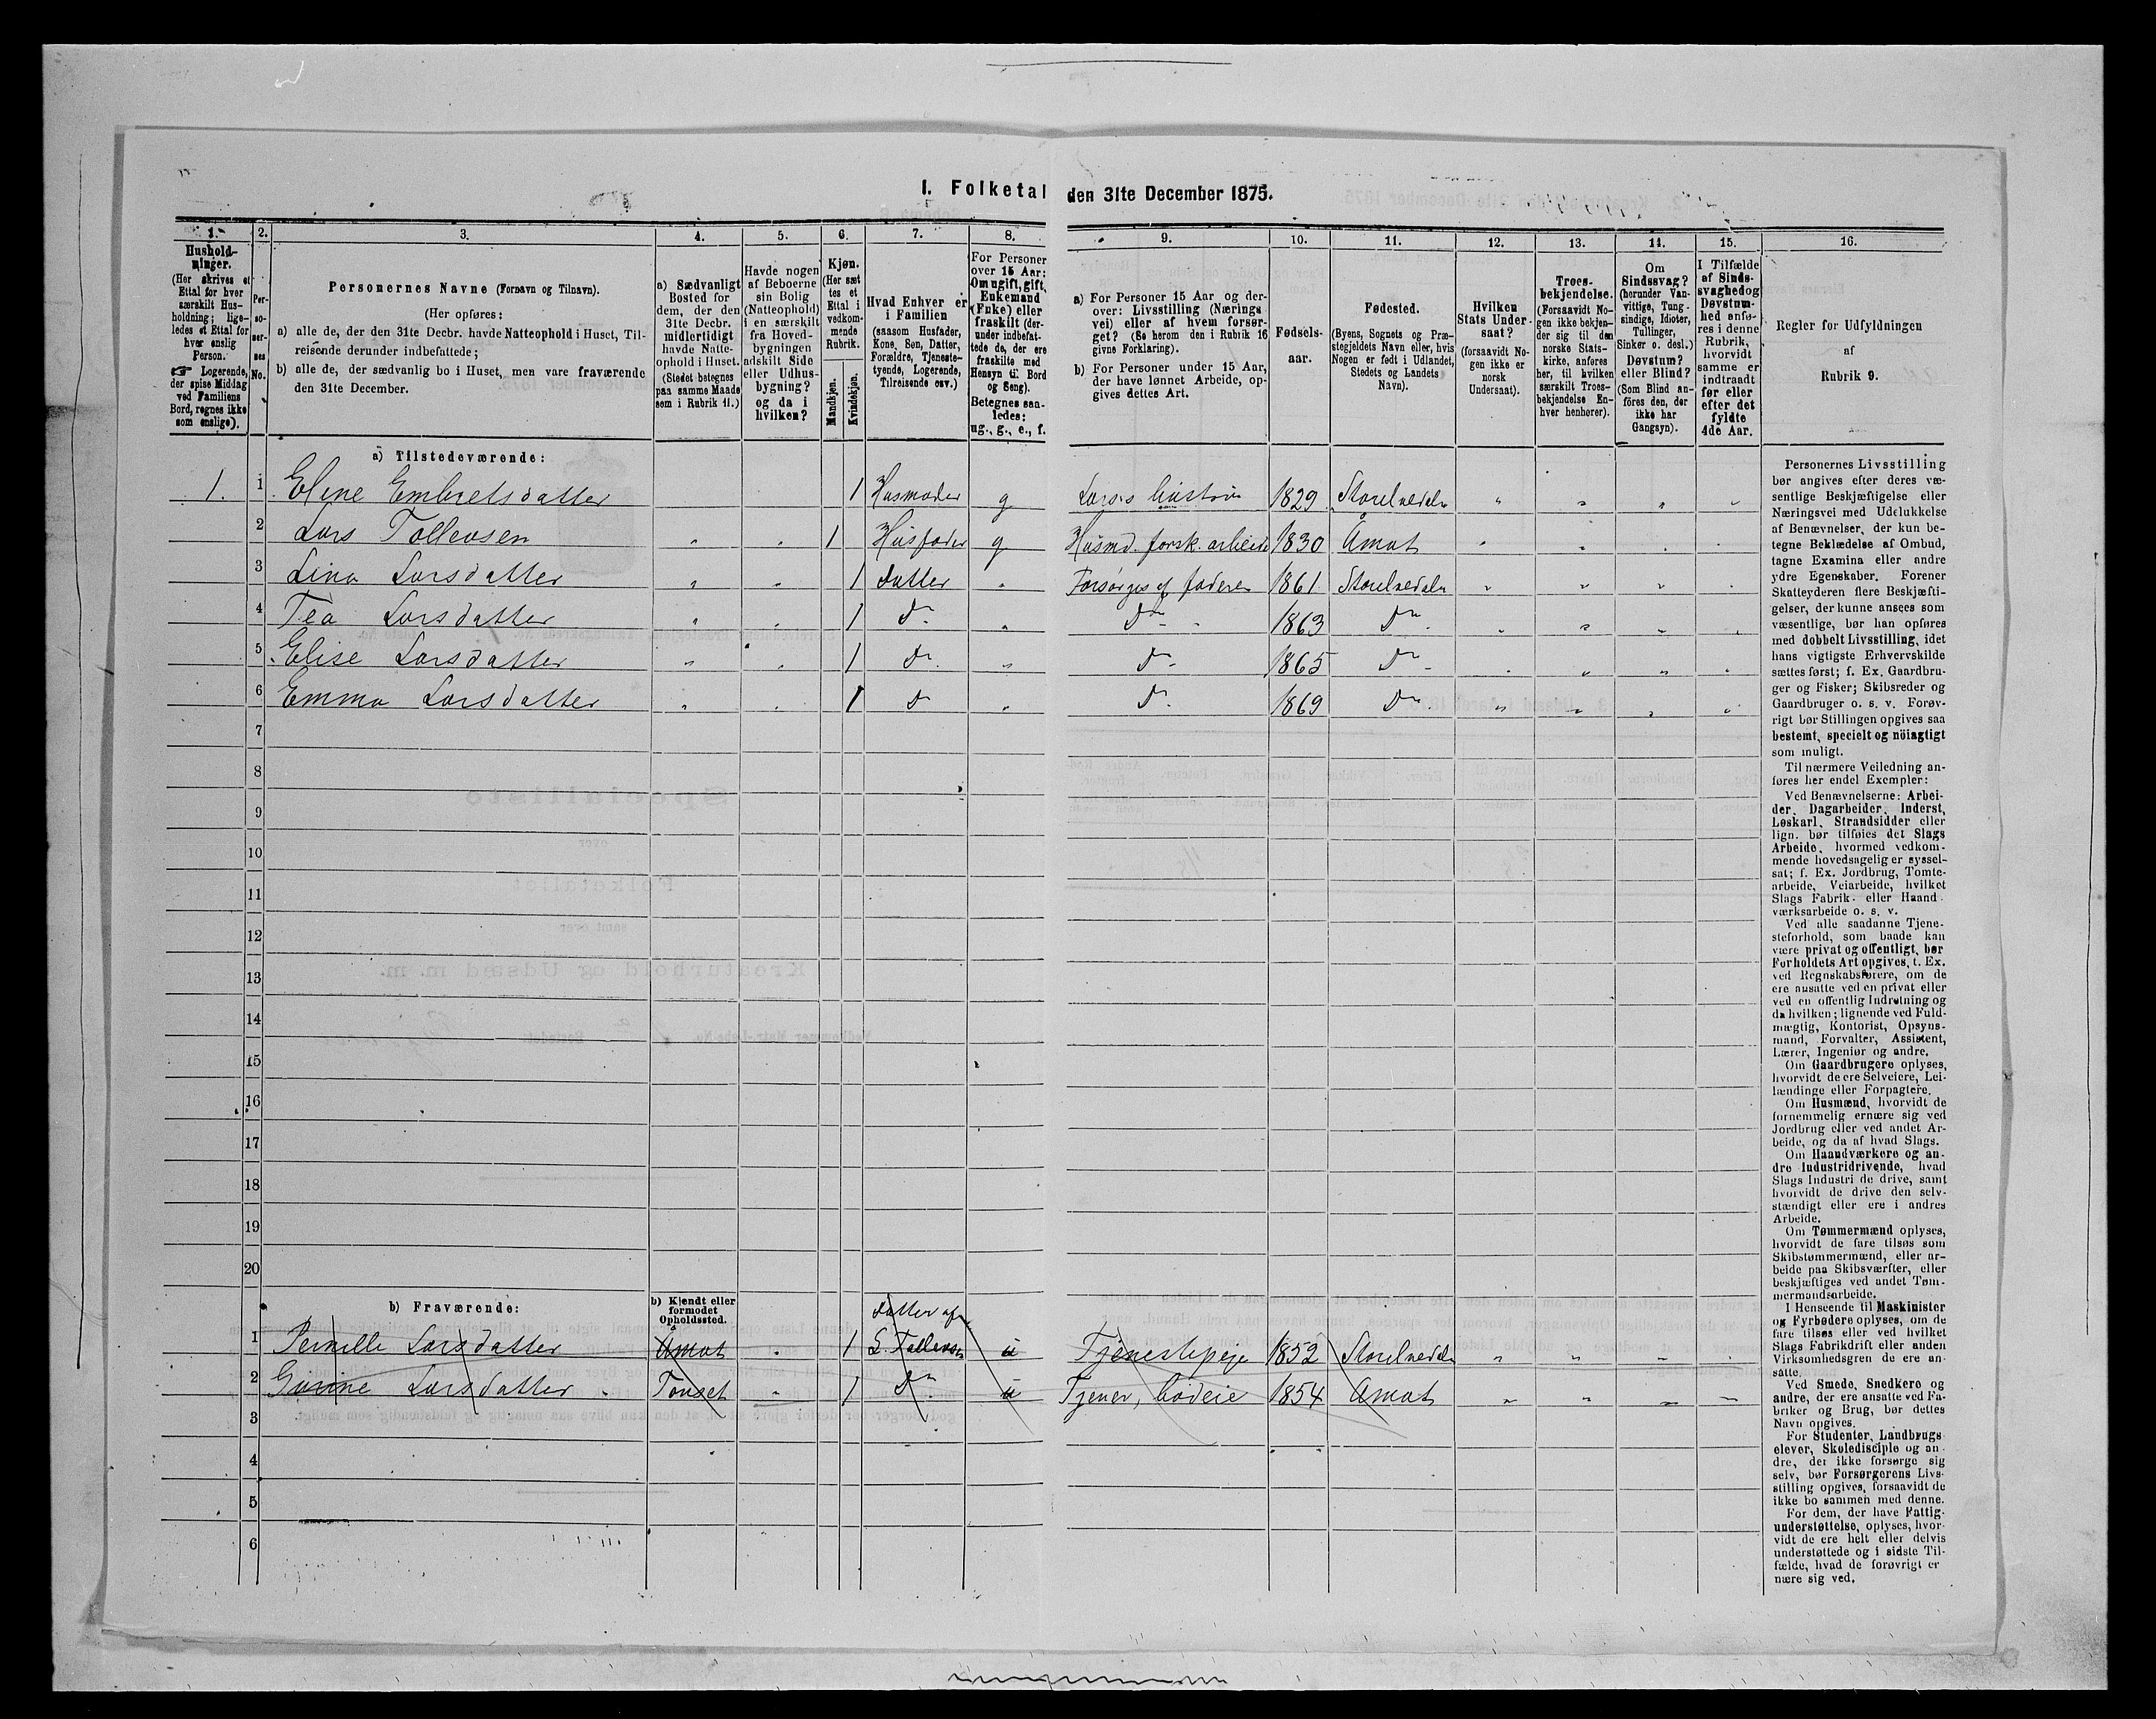 I. Folketal den 31te December 1875.
1. 2. 3. 4. 5. 6. 7. 8. 9. 10. 11. 12. 13. 14. 15. 16.
Hushold-
ninger.
(Her skrives et
Ettal for hver
særskilt Hus-
holdning; lige-
ledes et Ettal for
hver enslig
Person.
☞ Logerende,
der spise Middag
ved Familiens
Bord, regnes ikke
som enslige).
Per-
so-
ner-
nes
No.
Personernes Navne (Fornavn og Tilnavn).
(Her opføres:
a) alle de, der den 31te Decbr. havde Natteophold i Huset, Til-
reisende derunder indbefattede;
b) alle de, der sædvanlig bo i Huset, men vare fraværende
den 31te December.
a) Sædvanligt
Bosted for
dem, der den
31te Decbr.
midlertidigt
havde Natte-
ophold i Huset.
(Stedet betegnes
paa samme Maade
som i Rubrik 11.)
Havde nogen
af Beboerne
sin Bolig
(Natteophold)
i en særskilt
fra Hoved-
bygningen
adskilt Side
eller Udhus-
bygning?
og da i
hvilken?
Kjøn.
(Her sæt
tes et
Ettal i
vedkom-
mende
Rubrik.
Mandkjøn.
Kvindekjøn.
Hvad Enhver er
i Familien
(saasom Husfader,
Kone, Søn, Datter,
Forældre, Tjeneste-
tyende, Logerende,
Tilreisende osv.)
For Personer
over 15 Aar:
Om ugift, gift,
Enkemand
(Enke) eller
fraskilt (der-
under indbefat-
tede de, der ere
fraskilte med
Hensyn til Bord
og Seng).
Betegnes saa-
ledes:
ug., g., e., f.
a) For Personer 15 Aar og der-
over: Livsstilling (Nærings
vei) eller af hvem forsør-
get? (Se herom den i Rubrik 16
givne Forklaring).
b) For Personer under 15 Aar,
der have lønnet Arbeide, op-
gives dettes Art.
Fødsels-
aar.
Fødested.
(Byens, Sognets og Præ-
stegjeldets Navn eller, hvis
Nogen er født i Udlandet,
Stedets og Landets
Navn).
Hvilken
Stats Under-
saat?
(forsaavidt No-
gen ikke er
norsk
Undersaat).
Troes-
bekjendelse.
(Forsaavidt No-
gen ikke bekjen-
der sig til den
norske Stats-
kirke, anføres
her, til hvilken
særskilt Troes-
bekjendelse En-
hver henhører).
Om
Sindssvag?
(herunder Van-
vittige, Tung-
sindige, Idioter,
Tullinger,
Sinker o. desl.)
Døvstum?
eller Blind?
(Som Blind an-
föres den, der
ikke har
Gangsyn).
I Tilfælde
af Sinds-
svaghed og
Døvstum-
hed anfø-
res i denne
Rubrik,
hvorvidt
samme er
indtraadt
før eller
efter det
fyldte
4de Aar.
Regler for Udfyldningen
af
Rubrik 9.
a) Tilstedeværende:
1. 1 Eline Embretsdatter 1 Husmoder g Lars's hustru 1829 Storelvedalen " " " "
2 Lars Tollevsen " " 1 Husfader g Husmd. forsk. arbeide 1830 Åmot " " " "
3 Lina Larsdatter " " 1 datter " Forsørges af faderen 1861 Storelvedalen " " " "
4 Tea Larsdatter " " 1 do " do " 1863 do " " " "
5 Elise Larsdatter " " 1 do " do 1865 do " " " "
6 Emma Larsdatter " " 1 do " do 1869 do " " " "
7
8
9
10
11
12
13
14
15
16
17
18
19
20
b) Fraværende:
b) Kjendt eller
formodet
Opholdssted.
datter af
1 Pernille Larsdatter Åmot " 1 L. Tollevsen u Tjenestepige 1852 Storelvedalen " " " "
2 Larsdatter Tonset " 1 do u Tjener, budeie 1854 Åmot " " " "
3
4
5
6
Personernes Livsstilling
bør angives efter deres væ-
sentlige Beskjæftigelse eller
Næringsvei med Udelukkelse
af Benævnelser, der kun be-
tegne Beklædelse af Ombud,
tagne Examina eller andre
ydre Egenskaber. Forener
Skatteyderen flere Beskjæfti-
gelser, der kunne ansees som
væsentlige, bør han opføres
med dobbelt Livsstilling, idet
hans vigtigste Erhvervskilde
sættes først; f. Ex. Gaardbru-
ger og Fisker; Skibsreder og
Gaardbruger o. s. v. Forøv-
rigt bør Stillingen opgives saa
bestemt, specielt og nöiagtigt
som muligt.
Til nærmere Veiledning an-
føres her endel Exempler:
Ved Benævnelserne: Arbei-
der, Dagarbeider, Inderst,
Løskarl, Strandsidder eller
lign. bør tilføies det Slags
Arbeide, hvormed vedkom-
mende hovedsagelig er syssel-
sat; f. Ex. Jordbrug, Tomte-
arbeide, Veiarbeide, hvilket
Slags Fabrik- eller Haand-
værksarbeide o. s. v.
Ved alle saadanne Tjene-
steforhold, som baade kan
være privat og offentligt, bør
Forholdets Art opgives, f. Ex.
ved Regnskabsførere, om de
ere ansatte ved en privat eller
ved en offentlig Indretning og
da hvilken; lignende ved Fuld-
mægtig, Kontorist, Opsyns-
mand, Forvalter, Assistent,
Lærer, Ingeniør og andre.
Om Gaardbrugere oplyses,
hvorvidt de ere Selveiere, Lei-
lændinge eller Forpagtere.
Om Husmænd, hvorvidt de
fornemmelig ernære sig ved
Jordbrug eller ved andet Ar-
beide, og da af hvad Slags.
Om Haandværkere og an-
dre Industridrivende, hvad
Slags Industri de drive, samt
hvorvidt de drive den selv-
stændigt eller ere i andres
Arbeide.
Om Tømmermænd oplyses,
hvorvidt de fare tilsøs som
Skibstømmermænd, eller ar-
beide paa Skibsværfter, eller
beskjæftiges ved andet Tøm-
mermandsarbeide.
I Henseende til Maskinister
og Fyrbødere oplyses, om de
fare tilsøs eller ved hvilket
Slags Fabrikdrift eller anden
Virksomhedsgren de ere an-
satte.
Ved Smede, Snedkere og
andre, der ere ansatte ved Fa-
briker og Brug, bør dettes
Navn opgives.
For Studenter, Landbrugs-
elever, Skoledisciple og an-
dre, der ikke forsørge sig
selv, bør Forsørgerens Livs-
stilling opgives, forsaavidt de
ikke bo sammen med denne.
For dem, der have Fattig-
understøttelse, oplyses, hvor-
vidt de ere helt eller delvis
understøttede og i sidste Til-
fælde, hvad de forøvrigt er
nære sig ved.